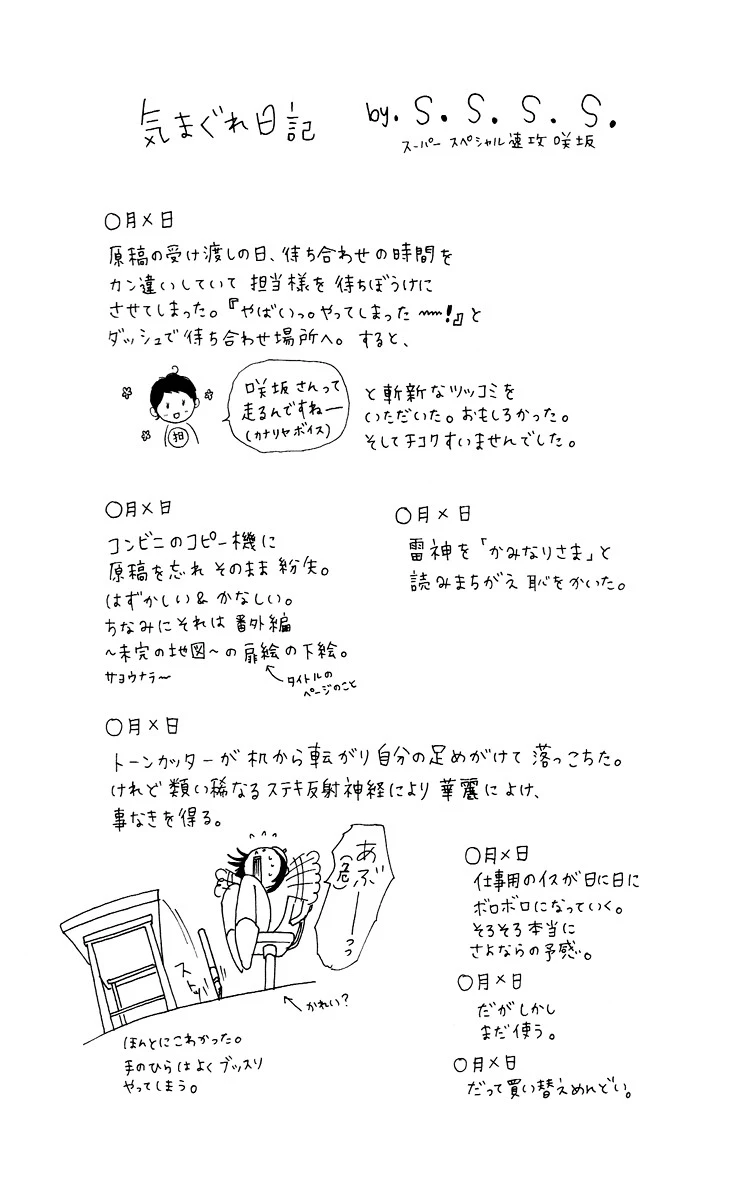 気まぐれ日記
by. S. S. S. S.
スーパー スペシャル速攻 咲坂
〇月×日
原稿の受け渡しの日、待ち合わせの時間を
カン違いしていて 担当様を 待ちぼうけに
させてしまった。『やばいっ。やってしまった〰!』と
ダッシュで待ち合わせ場所へ。すると、
担
咲坂さんって
走るんですねー
(カナリヤボイス)
と斬新なツッコミを
いただいた。おもしろかった。
そしてチコクすいませんでした。
〇月×日
コンビニのコピー機に
原稿を忘れ そのまま 紛失。
はずかしい& かなしい。
ちなみにそれは 番外編
~未完の地図~の扉絵の下絵。
サヨウナラ~
タイトルの
ページのこと
〇月×日
雷神を「かみなりさま」と
読みまちがえ 恥をかいた。
〇月×日
トーンカッターが 机から転がり自分の足めがけて 落っこちた。
けれど 類い稀なるステキ反射神経により 華麗によけ、
事なきを得る。
あぶーっっ
(危)
ストッ
かれい?
ほんとにこわかった。
手のひらはよくブッスリ
やってしまう。
〇月×日
仕事用のイスが日に日に
ボロボロになっていく。
そろそろ本当に
さよならの予感。
〇月×日
だがしかし
まだ使う。
〇月×日
だって買い替えめんどい。